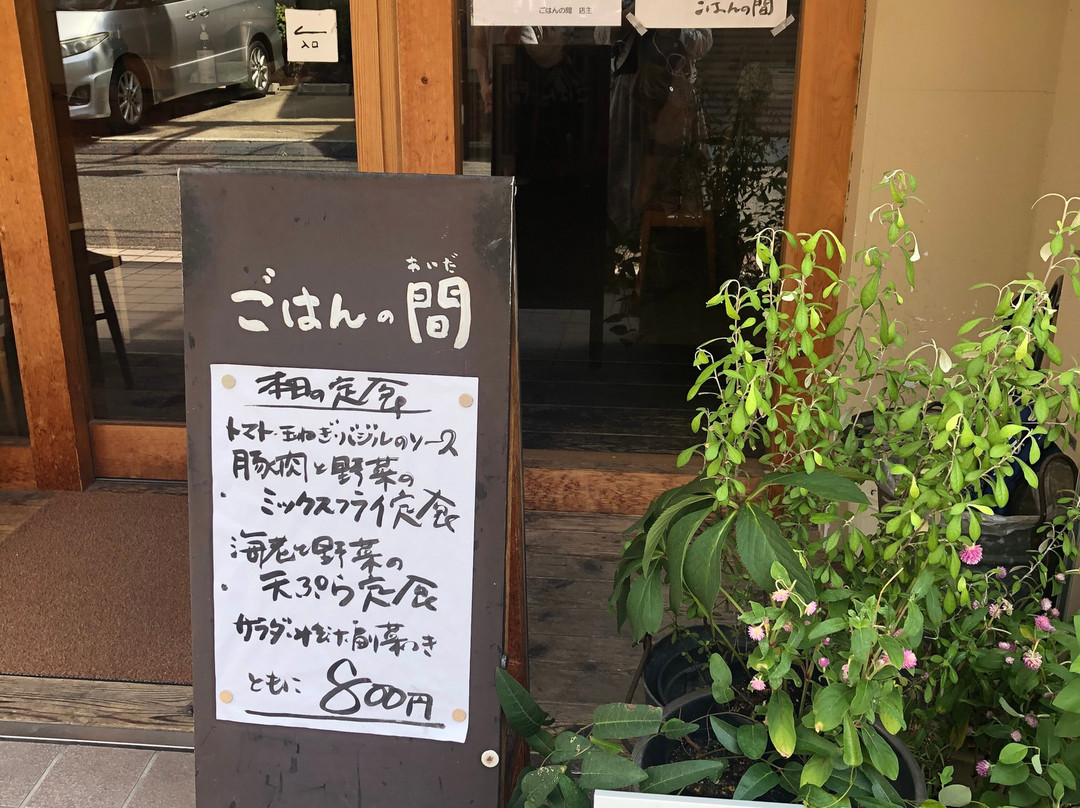 ごはんの間 店主
ごはんの間
入口
あいだ
ごはんの間
本日の定食
トマト・玉ねぎ・バジルのソース
豚肉と野菜の
・ミックスフライ定食
海老と野菜の
・天ぷら定食
サラダ・みそ汁・副菜つき
ともに 800円